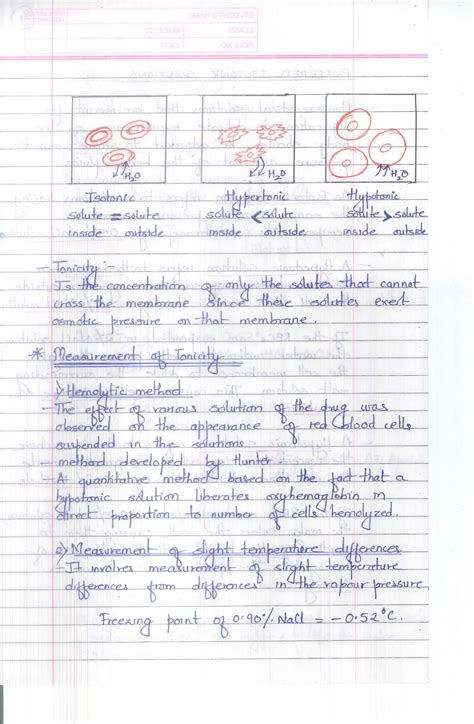 H₂O H₂O H₂O
Isotonic Hypertonic Hypotonic
solute = solute solute < solute solute > solute
inside outside inside outside inside outside
- Tonicity :-
Is the concentration of only the solutes that cannot
cross the membrane since these solutes exert
osmotic pressure on that membrane.
* Measurement of Tonicity
1) Hemolytic method
- The effect of various solution of the drug was
observed on the appearance of red blood cells
suspended in the solutions.
- method developed by Hunter.
- A quantitative method based on the fact that a
hypotonic solution liberates oxyhemoglobin in
direct proportion to number of cells hemolyzed.
2) Measurement of slight temperature differences
- It involves measurement of slight temperature
differences from differences in the vapour pressure
Freezing point of 0.90% NaCl = -0.52°C.